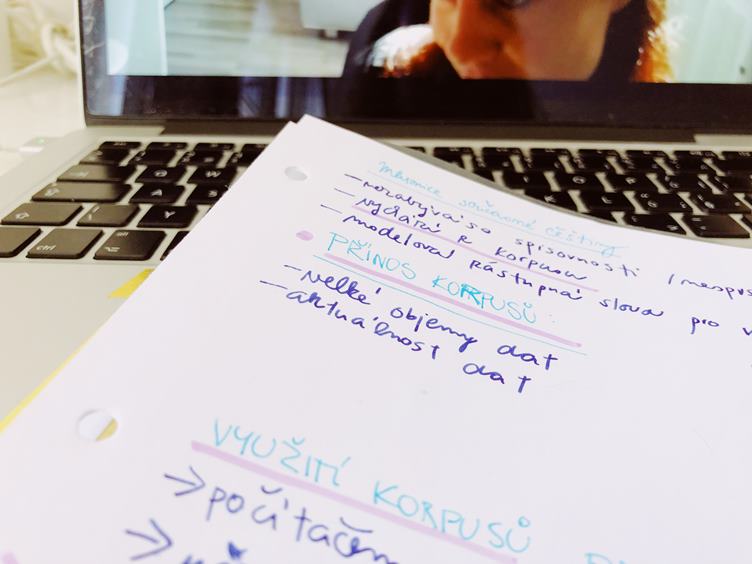 Mluvnice současné češtiny
– nezabývá se spisovností / nespr
– vychází z korpusu
– modelová zástupná slova pro v
PŘÍNOS KORPUSŮ:
– velké objemy dat
– aktuálnost dat
VYUŽITÍ KORPUSŮ
→ počítačem
→